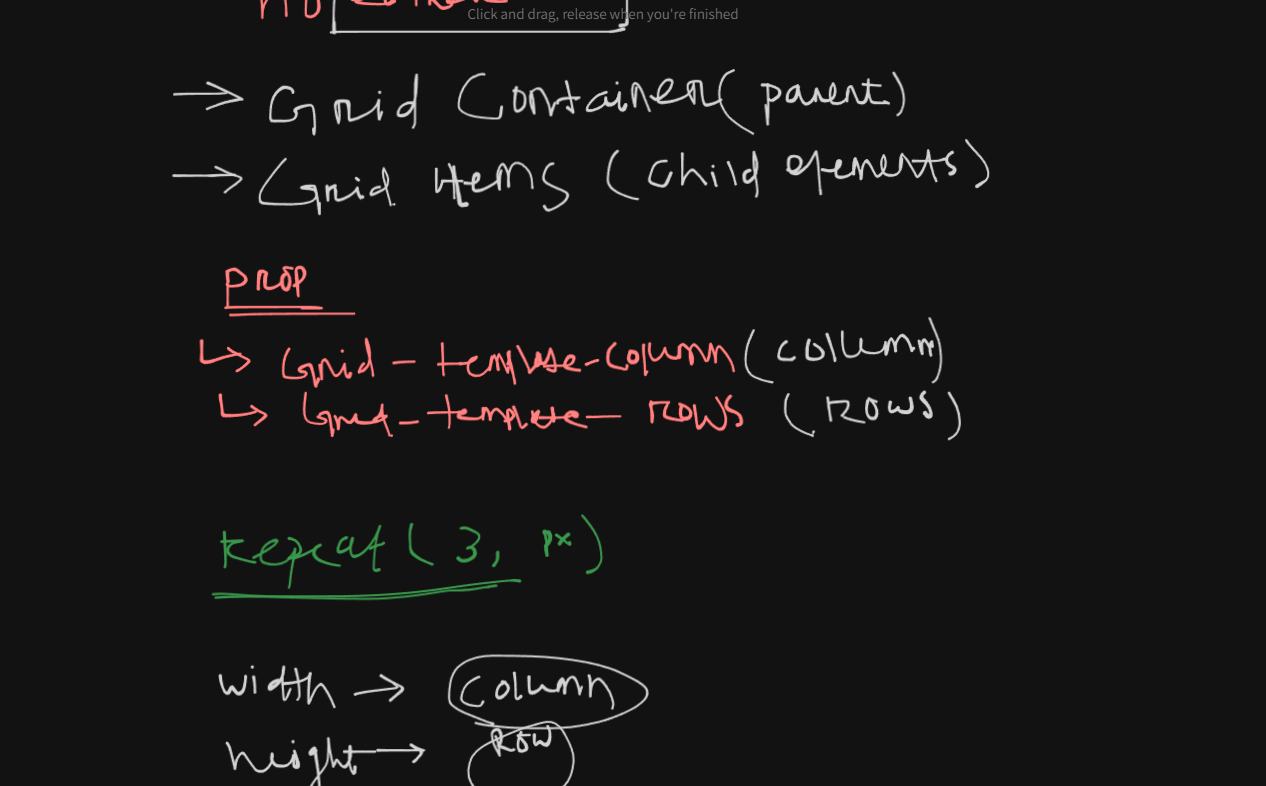 Click and drag, release when you're finished
→ Grid Container (parent)
→ Grid Items (child elements)
PROP
↳ Grid - template - column (column)
↳ Grid - template - ROWS (ROWS)
Repeat (3, px)
width → column
height → ROW